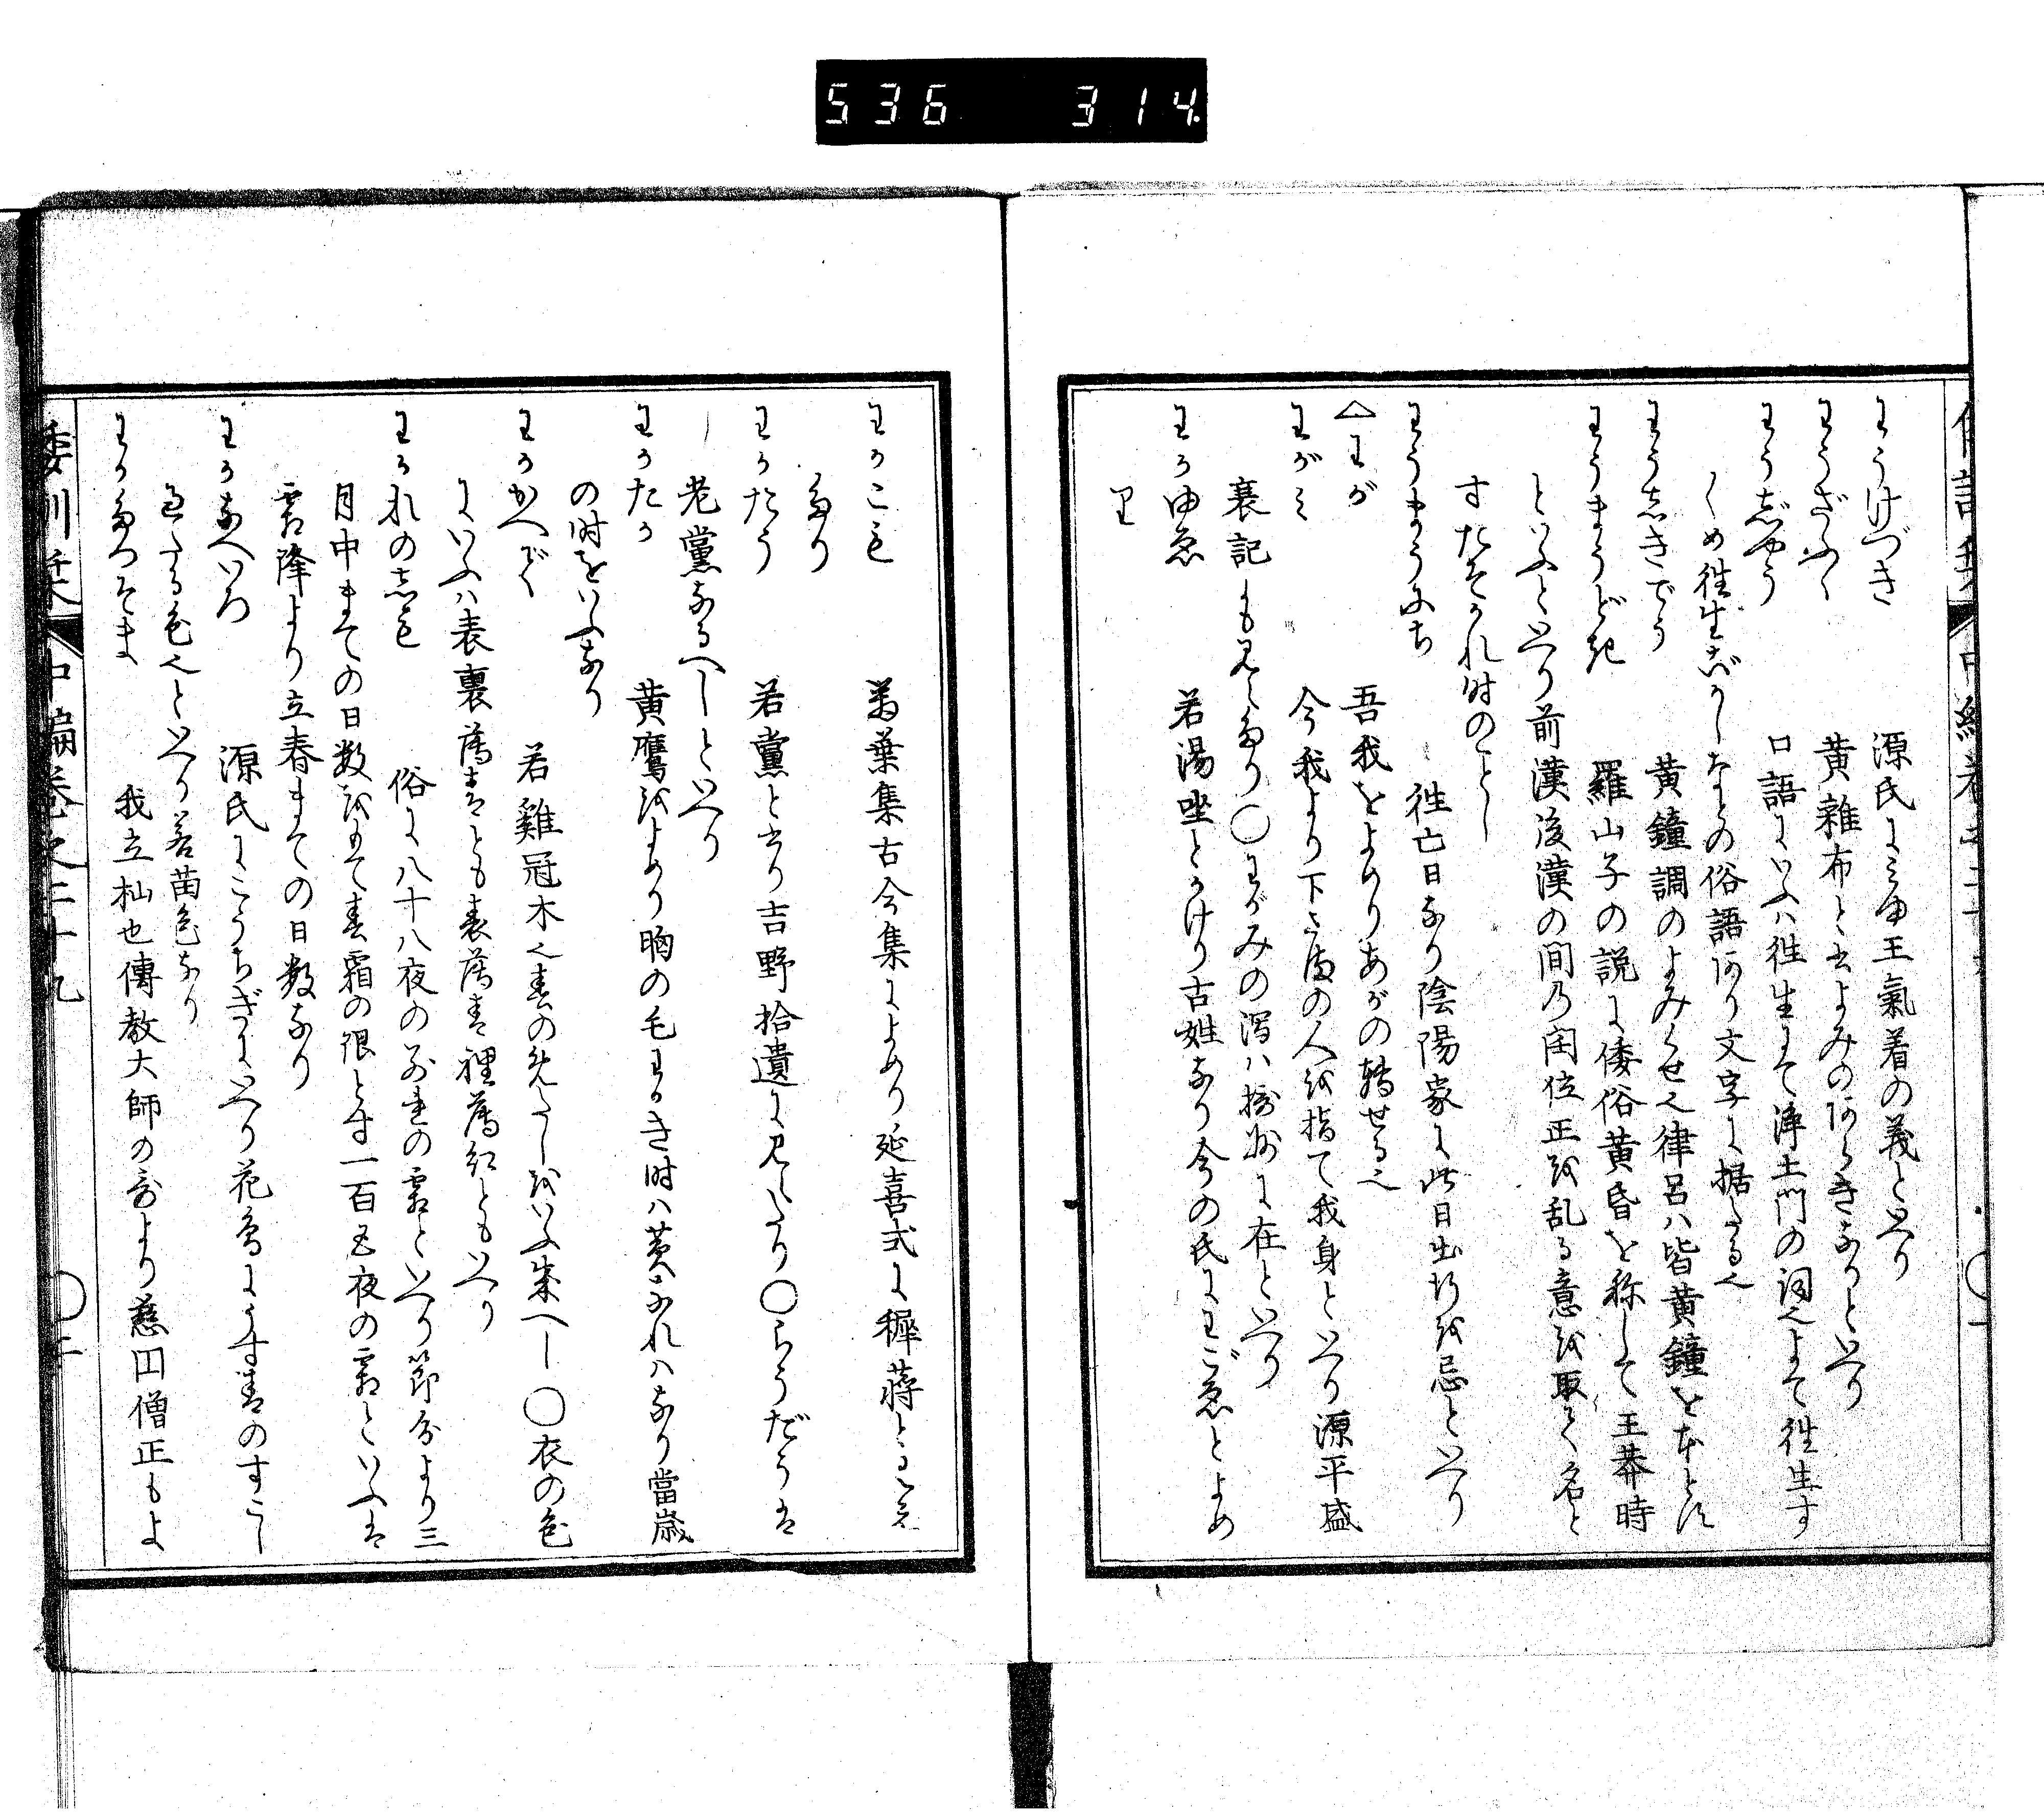 536 314
わうけづき 源氏にみゆ王氣着の義といへり
わうざふく 黄雜布と書よみのわろきなりといへり
わうじやう 口語にいふハ往生にて浄土門の詞也よて往生す
くめ往生ごかしなとの俗語有り文字に据たる也
わうしきでう 黄鐘調のよみくせ也律呂ハ皆黄鐘を本とす
わうまうどき 羅山子の説に倭俗黄昏を称して王莽時
といふといへり前漢後漢の間乃閏位正を乱る意を取て名と
すたそかれ時のことし
わうまうにち 往亡日なり陰陽家に此日出行を忌といへり
△わが 吾我をよめりあがの轉せる也
わがみ 今我より下さまの人を指て我身といへり源平盛
衰記にも見えたり○わがみの濱ハ播州に在といへり
わかゆゑ 若湯坐とかけり古姓なり今の氏にわごゑとよめ
り
わかこも 萬葉集古今集によめり延喜式に穉蒋とみえ
たり
わかたう 若黨と書り吉野拾遺に見えたり○らうだうは
老黨なるへしといへり
わかたか 黄鷹をよめり胸の毛わかき時ハ黄なれハなり當歳
の時をいふなり
わかかへで 若雞冠木也春の先たしをいふ染へし○衣の色
にいふハ表裏薄青とも表薄青裡薄紅ともいへり
わかれのしも 俗に八十八夜の別の霜といへり節分より三
月中まての日数をもて春霜の限とす一百五夜の霜といふは
霜降より立春まての日数なり
わかなへいろ 源氏にこうちぎにいへり花鳥にうす青のすこし
こたる色也といへり若苗色なり
わかたつそま 我立杣也傳教大師の哥より慈円僧正もよ
倭訓栞 中編巻之二十九 ○二